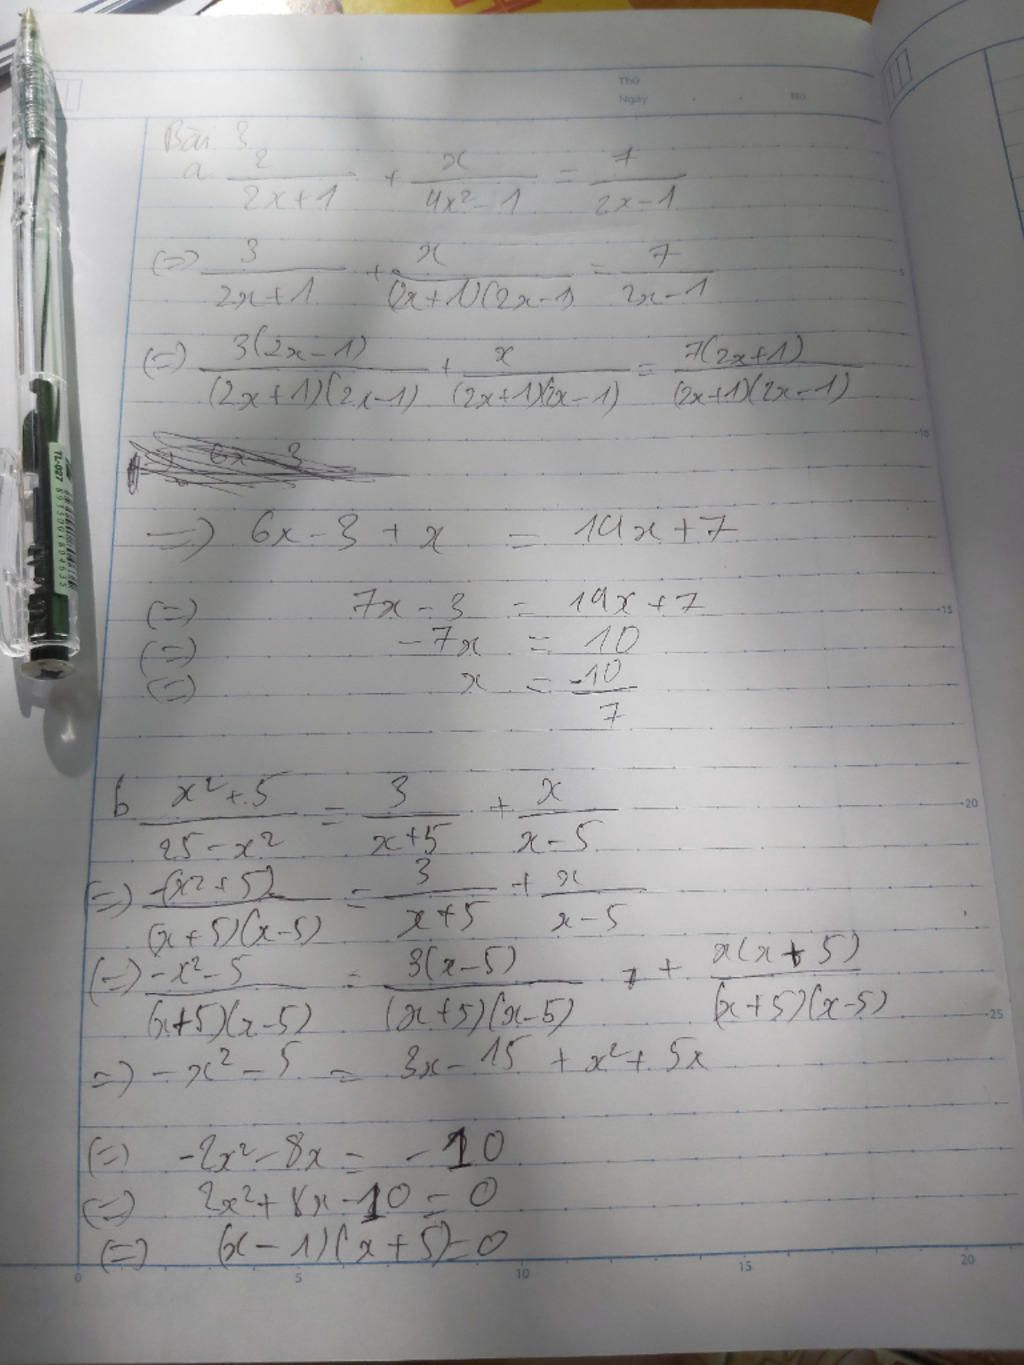 Thứ
Ngày No
Bài 3
a. 2/(2x+1) + x/(4x²-1) = 7/(2x-1)
(=) 3/(2x+1) + x/((2x+1)(2x-1) = 7/(2x-1)
(=) 3(2x-1)/((2x+1)(2x-1)) + x/((2x+1)(2x-1)) = 7(2x+1)/((2x+1)(2x-1))
=) 6x-3+x = 14x+7
(=) 7x-3 = 14x+7
(=) -7x = 10
(=) x = -10/7
b (x²+5)/(25-x²) = 3/(x+5) + x/(x-5)
(=) -(x²+5)/((x+5)(x-5)) = 3/(x+5) + x/(x-5)
(=) (-x²-5)/((x+5)(x-5)) = 3(x-5)/((x+5)(x-5)) + x(x+5)/((x+5)(x-5))
=) -x²-5 = 3x-15+x²+5x
(=) -2x²-8x = -10
(=) 2x²+8x-10=0
(=) (x-1)(x+5)=0
5
10
15
20
25
0 5 10 15 20
TL-027